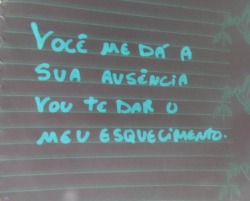 VOCÊ ME DÁ A
SUA AUSÊNCIA
VOU TE DAR O
MEU ESQUECIMENTO.